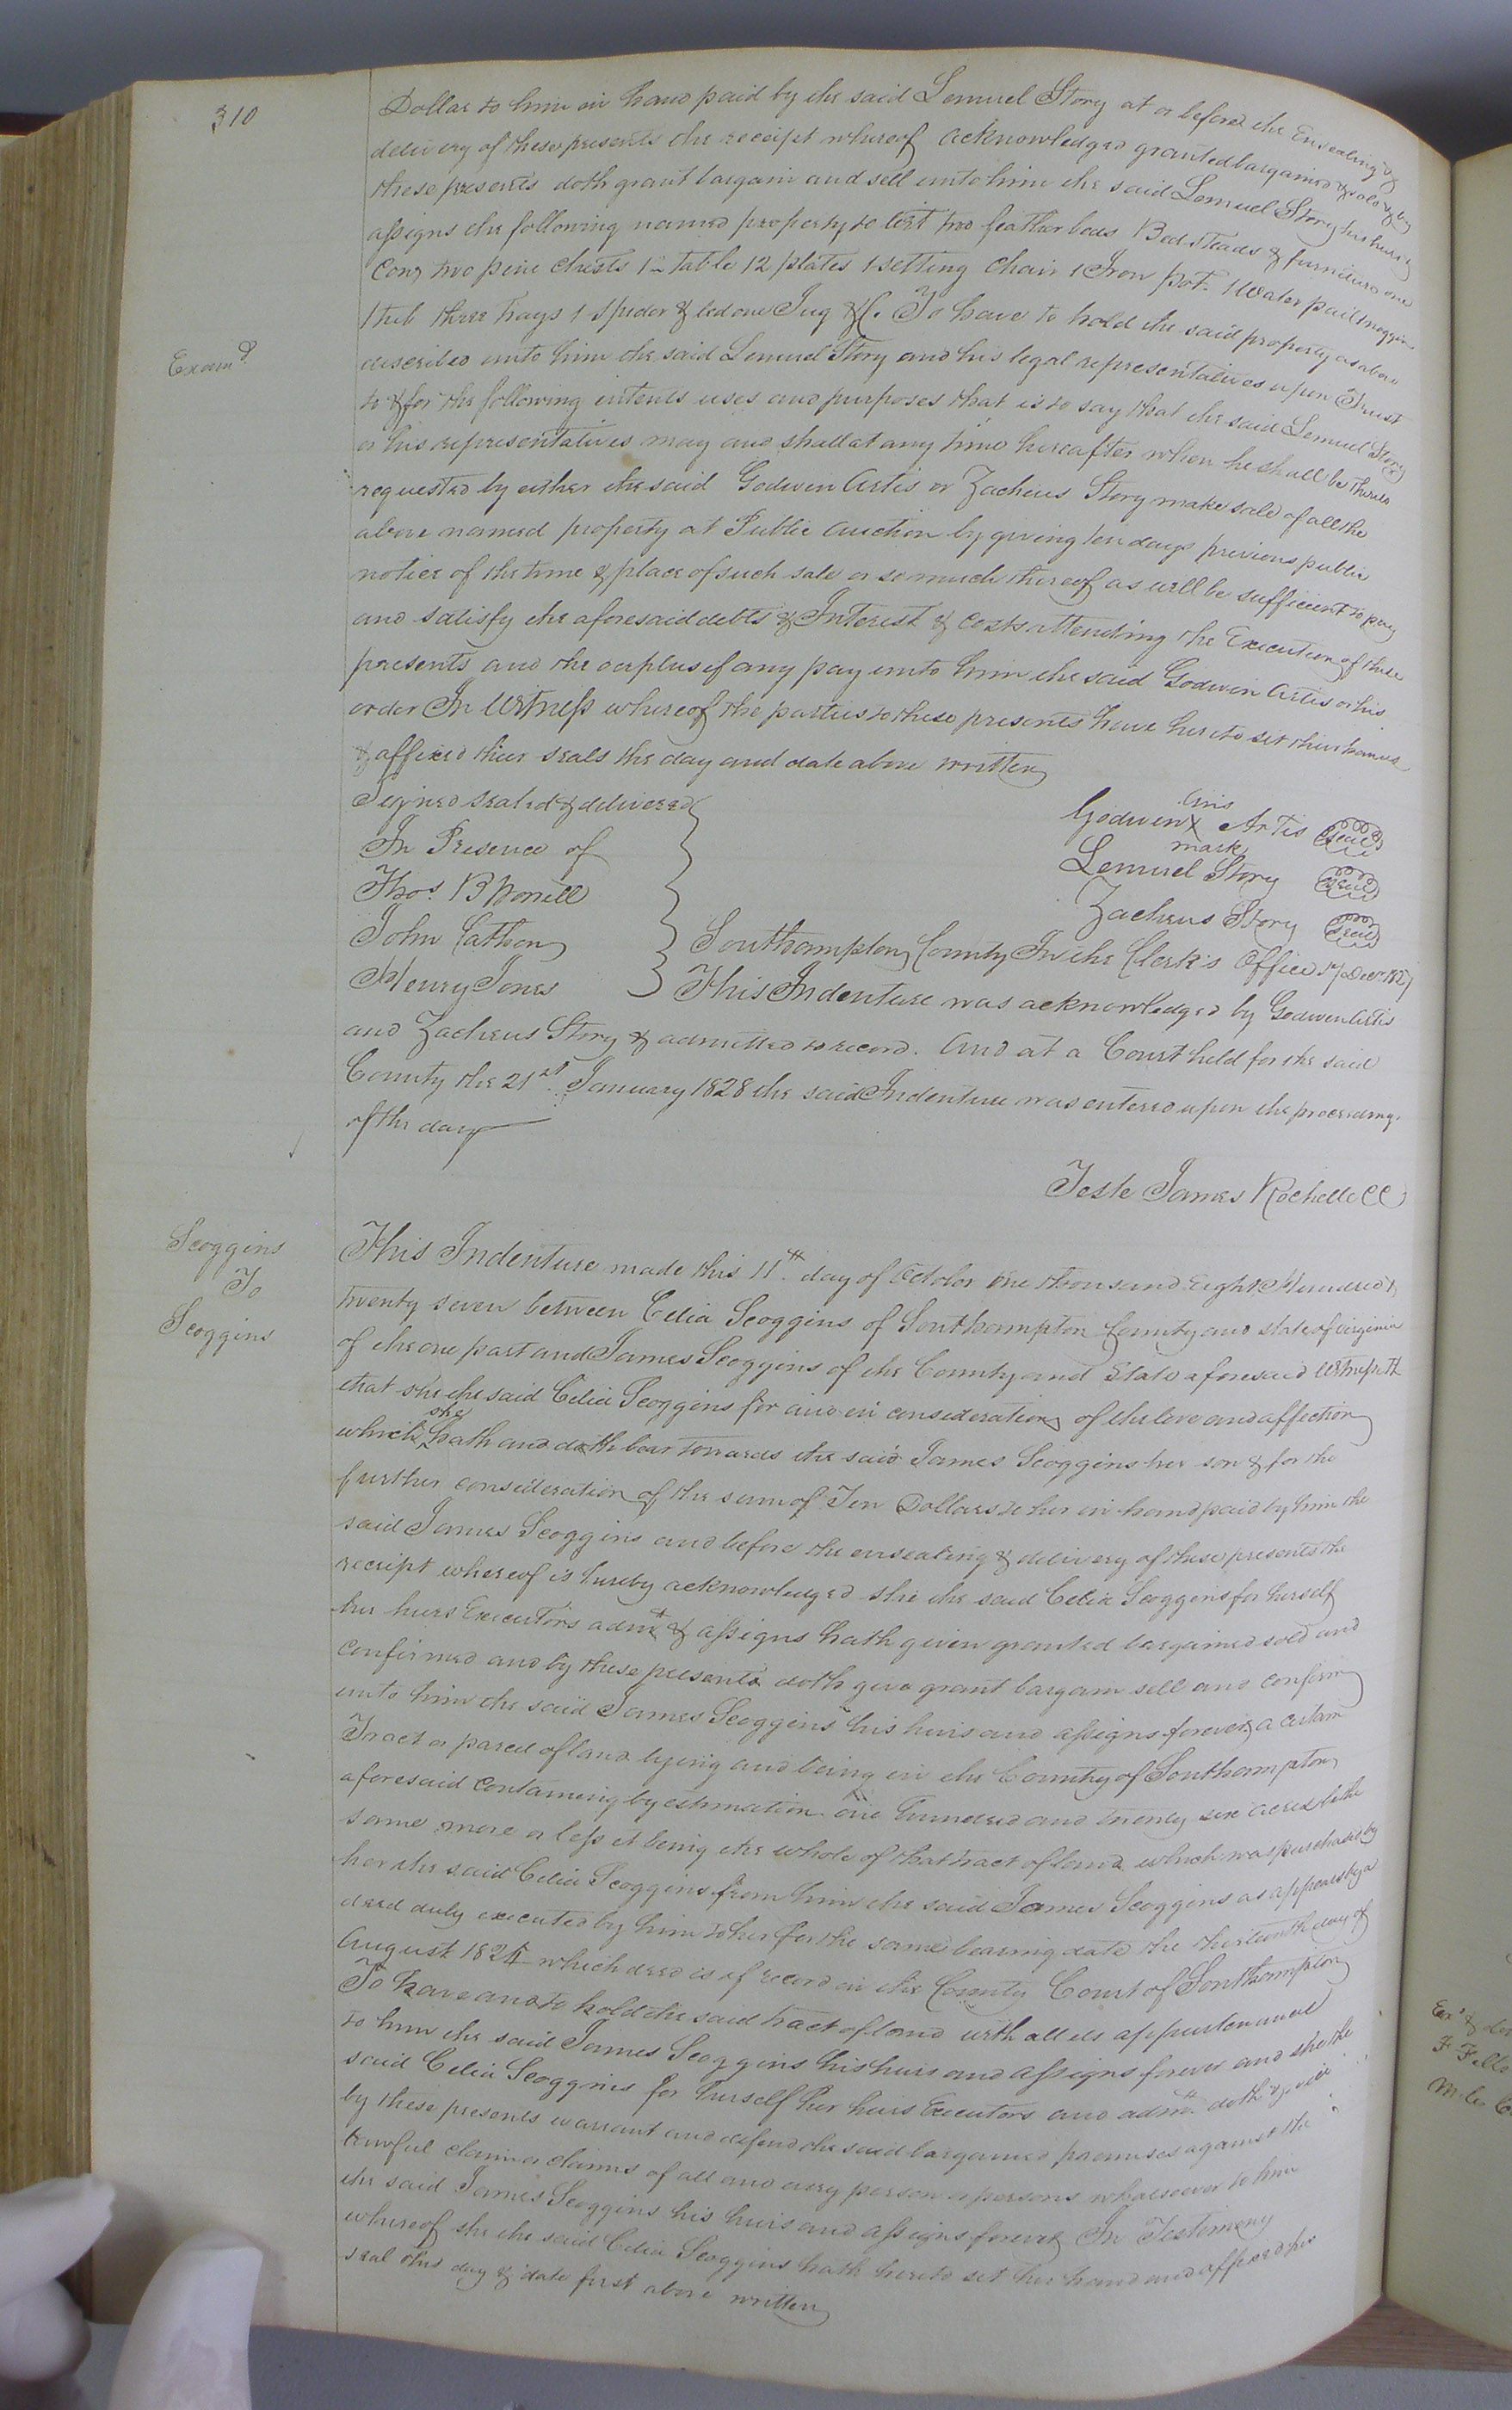 310
Dollar to him in hand paid by the said Lemuel Story at or before the Ensealing &
delivery of these presents the receipt whereof acknowledged granted bargained & sold & by
these presents doth grant bargain and sell unto him the said Lemuel Story his heirs &
assigns the following named property to wit two feather beds Bed steads & furniture one
Cow, two pine chests 1 table 12 plates 1 setting chair 1 Iron pot 1 Water pail
1 tub three trays 1 Spider & led one Jug &C. To have to hold the said property as above
Examd.
described unto him the said Lemuel Story and his legal representatives upon Trust
to & for the following intents uses and purposes that is to say that the said Lemuel Story
or his representatives may and shall at any time hereafter when he shall be thereto
requested by either the said Godwin Artis or Zacheus Story make sale of all the
above named property at Public Auction by giving ten days previous public
notice of the time & place of such sale or so much thereof as will be sufficient to pay
and satisfy the aforesaid debts & Interest & costs attending the Execution of these
presents and the overplus if any pay unto him the said Godwin Artis or his
order In Witness whereof the parties to these presents have hereto set their hands
& affixed their seals the day and date above written
Signed sealed & delivered
In Presence of
Thos. B Worrell
John Cathon
Henry Jones
his
Godwin X Artis Seal
mark
Lemuel Story Seal
Zacheus Story Seal
Southampton County In the Clerk's Office 17 Decr. 1827
This Indenture was acknowledged by Godwin Artis
and Zacheus Story & admitted to record. And at a Court held for the said
County the 21st. January 1828 the said Indenture was entered upon the proceedings
of the day
Teste James Rochelle CC
Scoggins
To
Scoggins
This Indenture made this 11th. day of Octobor One thousand Eight Hundred &
twenty seven between Celia Scoggins of Southampton County and state of virginia
of the one part and James Scoggins of the County and State aforesaid Witnesseth
that she the said Celia Scoggins for and in consideration of the love and affection
which she hath and doth bear towards the said James Scoggins her son & for the
further consideration of the sum of Ten Dollars to her in hand paid by him the
said James Scoggins and before the ensealing & delivery of these presents the
receipt whereof is hereby acknowledged she the said Celia Scoggins for herself
her heirs Executors admr. & assigns hath given granted bargained sold and
confirmed and by these presents doth give grant bargain sell and confirm
unto him the said James Scoggins his heirs and assigns forever, a certain
Tract or parcel of land lying and being in the County of Southampton
aforesaid containing by estimation one hundred and twenty six acres be the
same more or less it being the whole of that tract of land which was purchased by
her the said Celia Scoggins from him the said James Scoggins as appears by a
deed duly executed by him to her for the same bearing date the thirteenth day of
August which deed is of record in the County Court of Southampton
To have and to hold the said tract of land with all its appurtenances
to him the said James Scoggins his heirs and assigns forever and she the
said Celia Scoggins for herself her heirs Executors and admrs. doth & will
by these presents warrant and defend the said bargained premises against the
lawful claim or claims of all and every person or persons whatsoever to him
the said James Scoggins his heirs and assigns forever In Testimony
whereof she the said Celia Scoggins hath hereto set her hand and affixed her
seal this day & date first above written